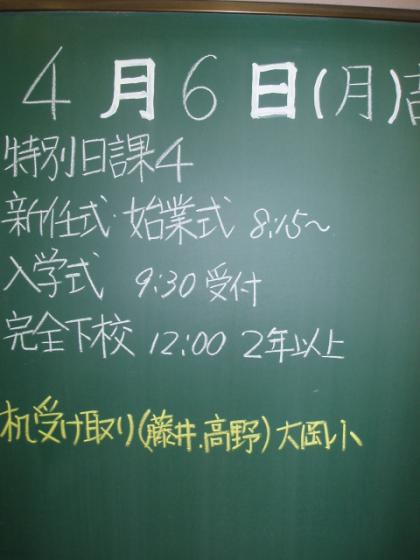 4月6日(月)
特別日課4
新任式・始業式 8:15～
入学式 9:30 受付
完全下校 12:00 2年以上
机受け取り(藤井.高野)大岡小